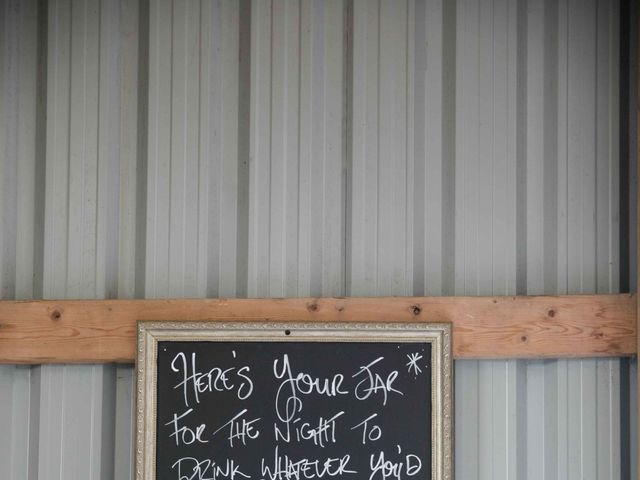 Here's Your Jar *
For the Night to
Drink Whatever You'd